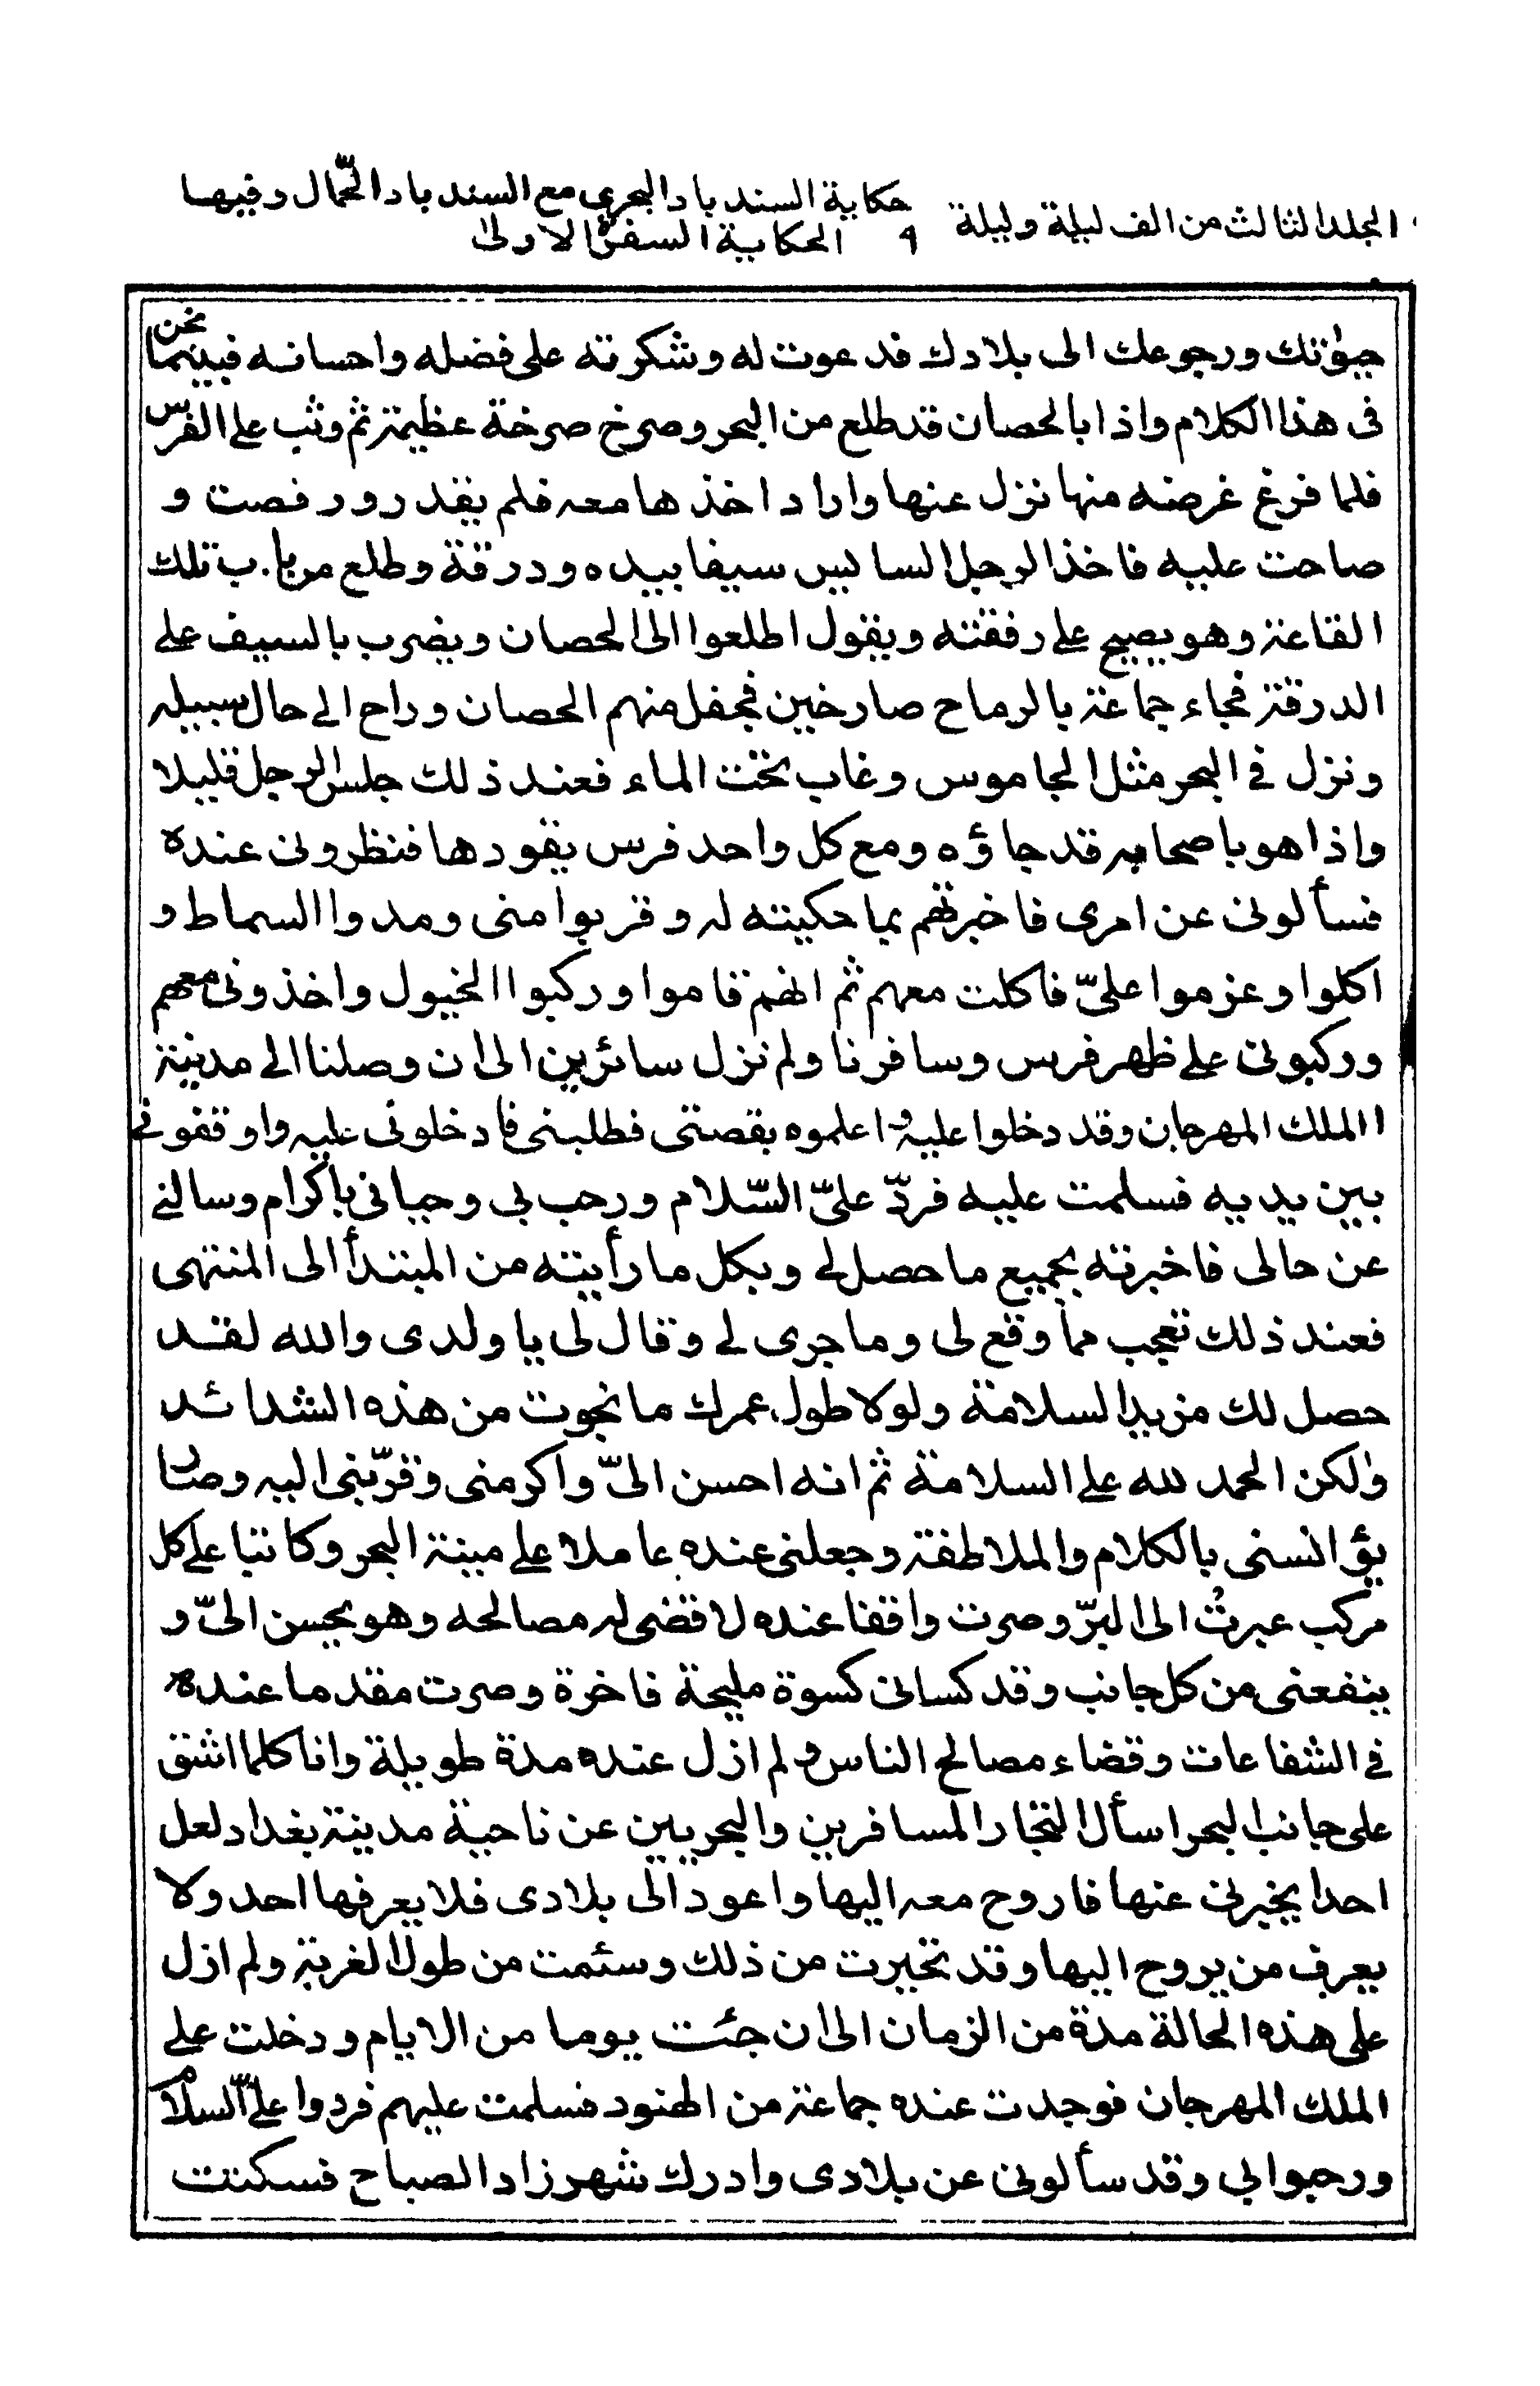 المجلد الثالث من الف ليلة وليلة ٩ حكاية السندباد البحري مع السندباد الحمّال وفيها
الحكاية السفرة الاولى
حيٰوتك ورجوعك الى بلادك فدعوت له وشكرته على فضله واحسانه فبينما نحن
فى هذا الكلام واذا بالحصان قد طلع من البحر وصرخ صرخة عظيمة ثم وثب على الفرس
فلما فرغ غرضه منها نزل عنها واراد اخذها معه فلم يقدر ورفصت و
صاحت عليه فاخذ الرجل السايس سيفا بيده ودرقة وطلع من باب تلك
القاعة وهو يصيح على رفقته ويقول اطلعوا الى الحصان ويضرب بالسيف على
الدرقة فجاء جماعة بالرماح صارخين فجفل منهم الحصان وراح الى حال سبيله
ونزل فى البحر مثل الجاموس وغاب تحت الماء فعند ذلك جلس الرجل قليلا
واذا هو باصحابه قد جاؤه ومع كل واحد فرس يقودها فنظرونى عنده
فسألونى عن امرى فاخبرتهم بما حكيته له وقربوا منى ومدوا السماط و
اكلوا وعزموا علىّ فاكلت معهم ثم انهم قاموا وركبوا الخيول واخذونى معهم
وركبونى على ظهر فرس وسافرنا ولم نزل سائرين الى ان وصلنا الى مدينة
الملك المهرجان وقد دخلوا عليه واعلموه بقصتى فطلبنى فادخلونى عليه واوقفونى
بين يديه فسلمت عليه فردّ علىّ السّلام ورحب بى وحيانى باكرام وسالنى
عن حالى فاخبرته بجميع ما حصل لى وبكل ما رأيته من المبتدأ الى المنتهى
فعند ذلك تعجب مما وقع لى وما جرى لى وقال لى يا ولدى والله لقد
حصل لك مزيد السلامة ولولا طول عمرك ما نجوت من هذه الشدائد
ولكن الحمد لله على السلامة ثم انه احسن الىّ واكرمنى وقرّبنى اليه وصار
يؤانسنى بالكلام والملاطفة وجعلنى عنده عاملا على مينة البحر وكاتبا على كل
مركب عبرتُ الى البرّ وصرت واقفا عنده لاقضى له مصالحه وهو يحسن الىّ و
ينفعنى من كل جانب وقد كسانى كسوة مليحة فاخرة وصرت مقدما عنده
فى الشفاعات وقضاء مصالح الناس ولم ازل عنده مدة طويلة وانا كلما اشق
على جانب البحر اسأل التجار المسافرين والبحريين عن ناحية مدينة بغداد لعل
احدا يخبرنى عنها فاروح معه اليها واعود الى بلادى فلا يعرفها احد ولا
يعرف من يروح اليها وقد تحيرت من ذلك وسئمت من طول الغربة ولم ازل
على هذه الحالة مدة من الزمان الى ان جئت يوما من الايام ودخلت على
الملك المهرجان فوجدت عنده جماعة من الهنود فسلمت عليهم فردوا علىّ السلام
ورحبوا بى وقد سألونى عن بلادى وادرك شهرزاد الصباح فسكتت